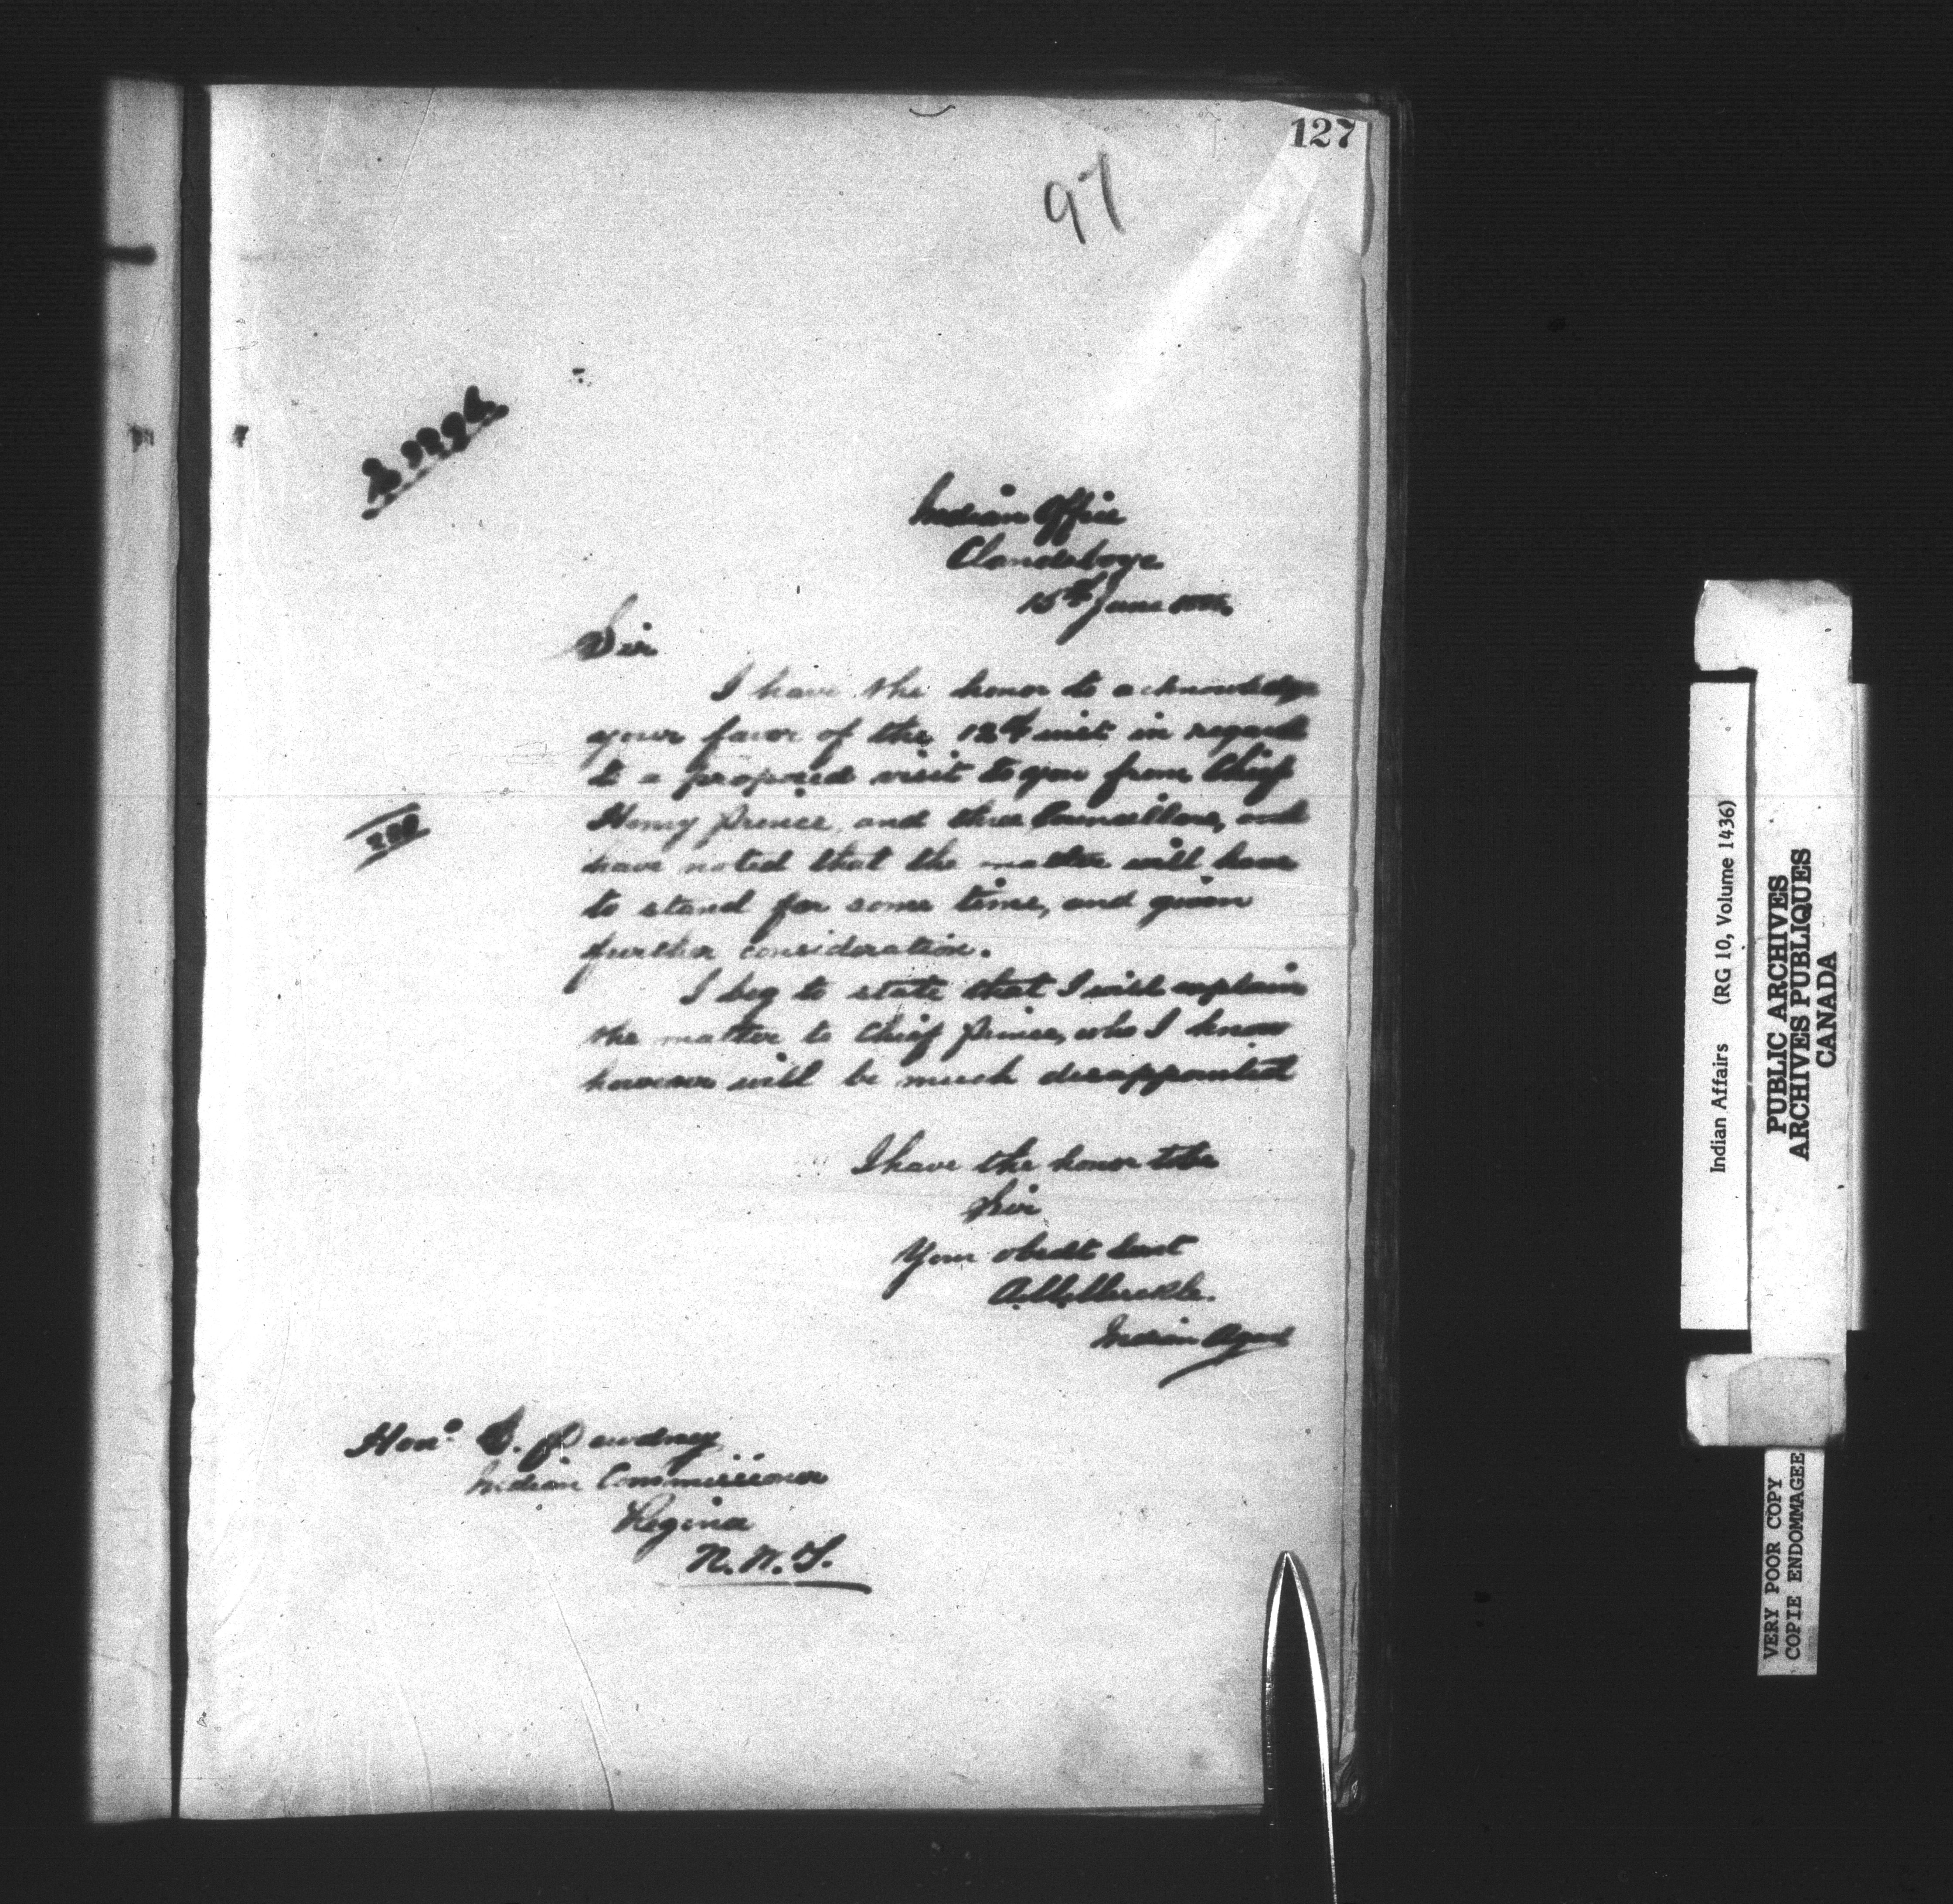 127
97
Indian Office
Clandeboye
15th June
Sir
I have the honor to acknowledge
your favor of the 12th inst in regard
to a proposed visit to you from Chief
Henry Prince, and three Councillors, and
have noted that the matter will have
to stand for some time, and given
further consideration.
I beg to state that I will explain
the matter to Chief Prince, who I know
however will be much disappointed
I have the honor to be
Sir
Your obedt Servt
A. M. Muckle.
Indian Agent
Hon. E. Dewdney
Indian Commissioner
Regina
N.W.T.
Indian Affairs (RG 10, Volume 1436)
PUBLIC ARCHIVES
ARCHIVES PUBLIQUES
CANADA
VERY POOR COPY
COPIE ENDOMMAGEE